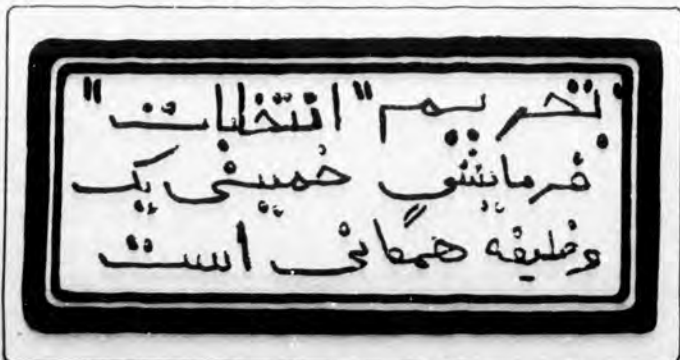 تحریم "انتخابات"
فرمایشی خمینی یک
وظیفه همگانی است